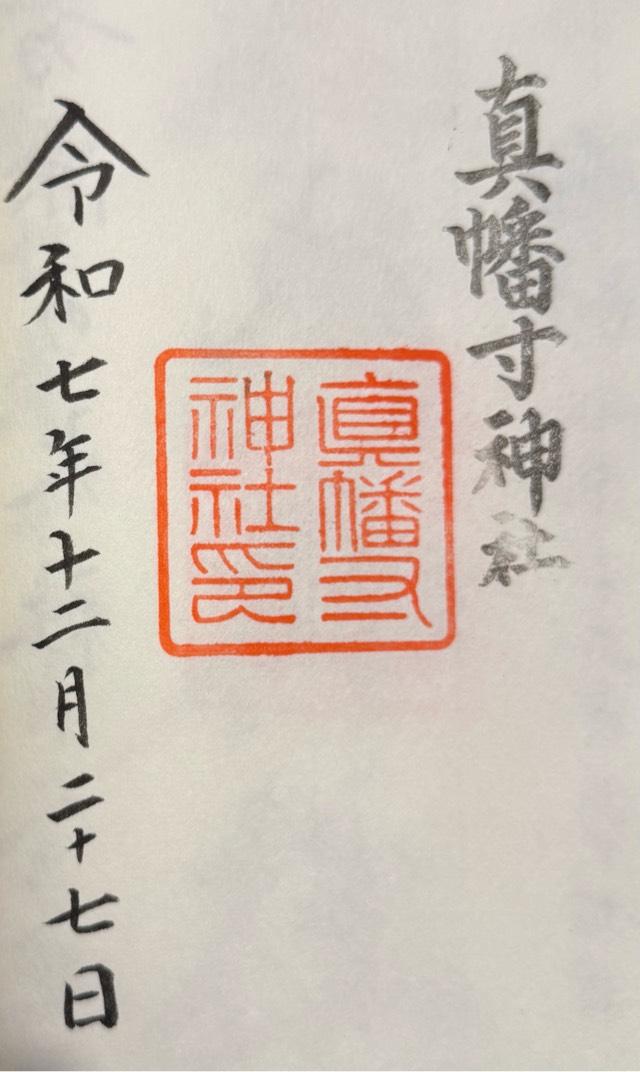 真幡寸神社
真幡寸
神社印
令和七年十二月二十七日